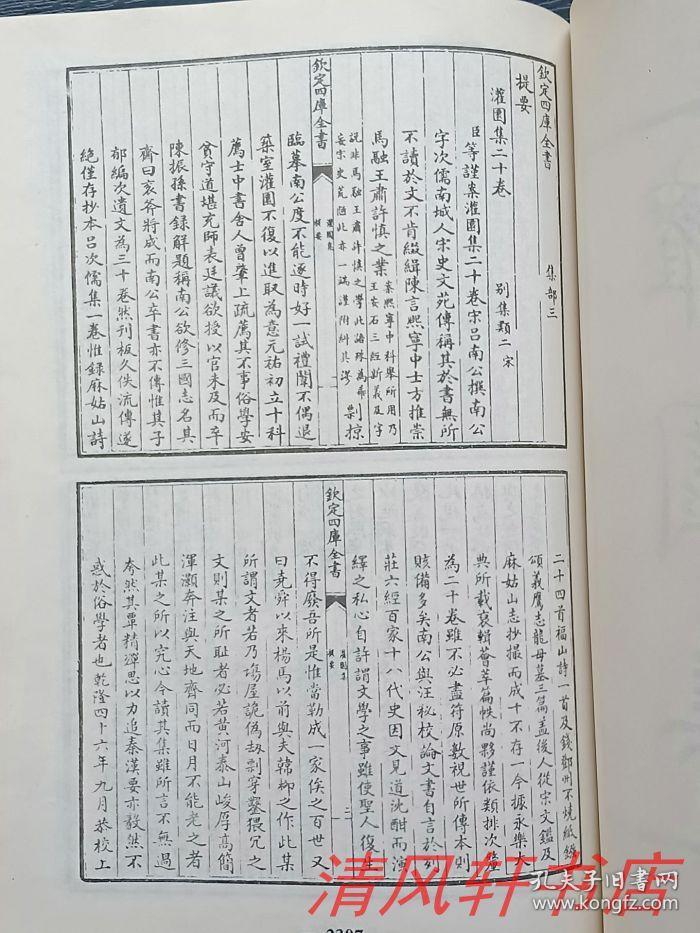 欽定四庫全書
集部三
提要
灌園集二十卷
別集類二宋
臣等謹案灌園集二十卷宋吕南公撰南公
字次儒南城人宋史文苑傳稱其於書無所
不讀於文不肯綴緝陳言熙寧中士方推崇
馬融王肅許慎之業
案熙寧中科舉所用乃
王安石三經新義及字
說非馬融王肅許慎之學此語殊為
妄宋史荒陋此亦一端謹附糾其謬
剽掠
欽定四庫全書
灌園集
提要
一
臨摹南公度不能逐時好一試禮闈不偶退
築室灌園不復以進取為意元祐初立十科
薦士中書舍人曾肇上疏薦其不事俗學安
貧守道堪充師表廷議欲授以官未及而卒
陳振孫書錄解題稱南公欲修三國志名其
齋曰衮斧將成而南公卒書亦不傳惟其子
郁編次遺文為三十卷然刊板久佚流傳遂
絕僅存抄本吕次儒集一卷惟録麻姑山詩
二十四首福山詩一首及錢鄧州不燒紙鏹
頌義鷹志龍母墓三篇盖後人從宋文鑑及
麻姑山志抄撮而成十不存一今據永樂大
典所載裒輯薈萃篇帙尚夥謹依類排次釐
為二十卷雖不必盡符原數視世所傳本則
賅備多矣南公與汪秘校論文書自言於列
莊六經百家十八代史因文見道沈酣而演
繹之私心自許謂文學之事雖使聖人復生
欽定四庫全書
灌園集
提要
二
不得廢吾所是惟當勒成一家俟之百世又
曰堯舜以來楊馬以前與夫韓柳之作此某
所謂文者若乃塲屋詭偽刼剽穿鑿猥冗之
文則某之所耻者必若黄河泰山峻厚高簡
渾灝奔注與天地齊同而日月不能老之者
此某之所以究心今讀其集雖所言不無過
夸然其覃精殫思以力追秦漢要亦毅然不
惑於俗學者也乾隆四十六年九月恭校上
2397
清风轩书店
孔夫子旧书网
www.kongfz.com